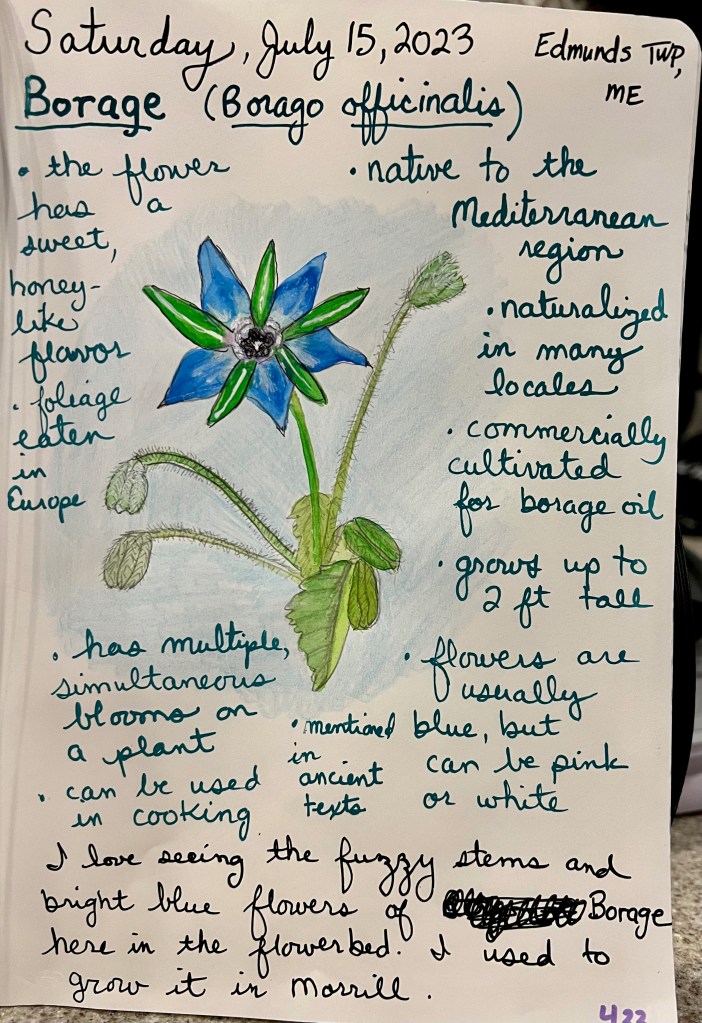 Saturday, July 15, 2023
Edmunds Twp,
ME
Borage (Borago officinalis)
• the flower
has a
sweet,
honey-
like
flavor
• foliage
eaten
in
Europe
• native to the
Mediterranean
region
• naturalized
in many
locales
• commercially
cultivated
for borage oil
• grows up to
2 ft tall
• has multiple,
simultaneous
blooms on
a plant
• can be used
in cooking
• mentioned
in
ancient
texts
• flowers are
usually
blue, but
can be pink
or white
I love seeing the fuzzy stems and
bright blue flowers of Borage
here in the flowerbed. I used to
grow it in Morrill.
422